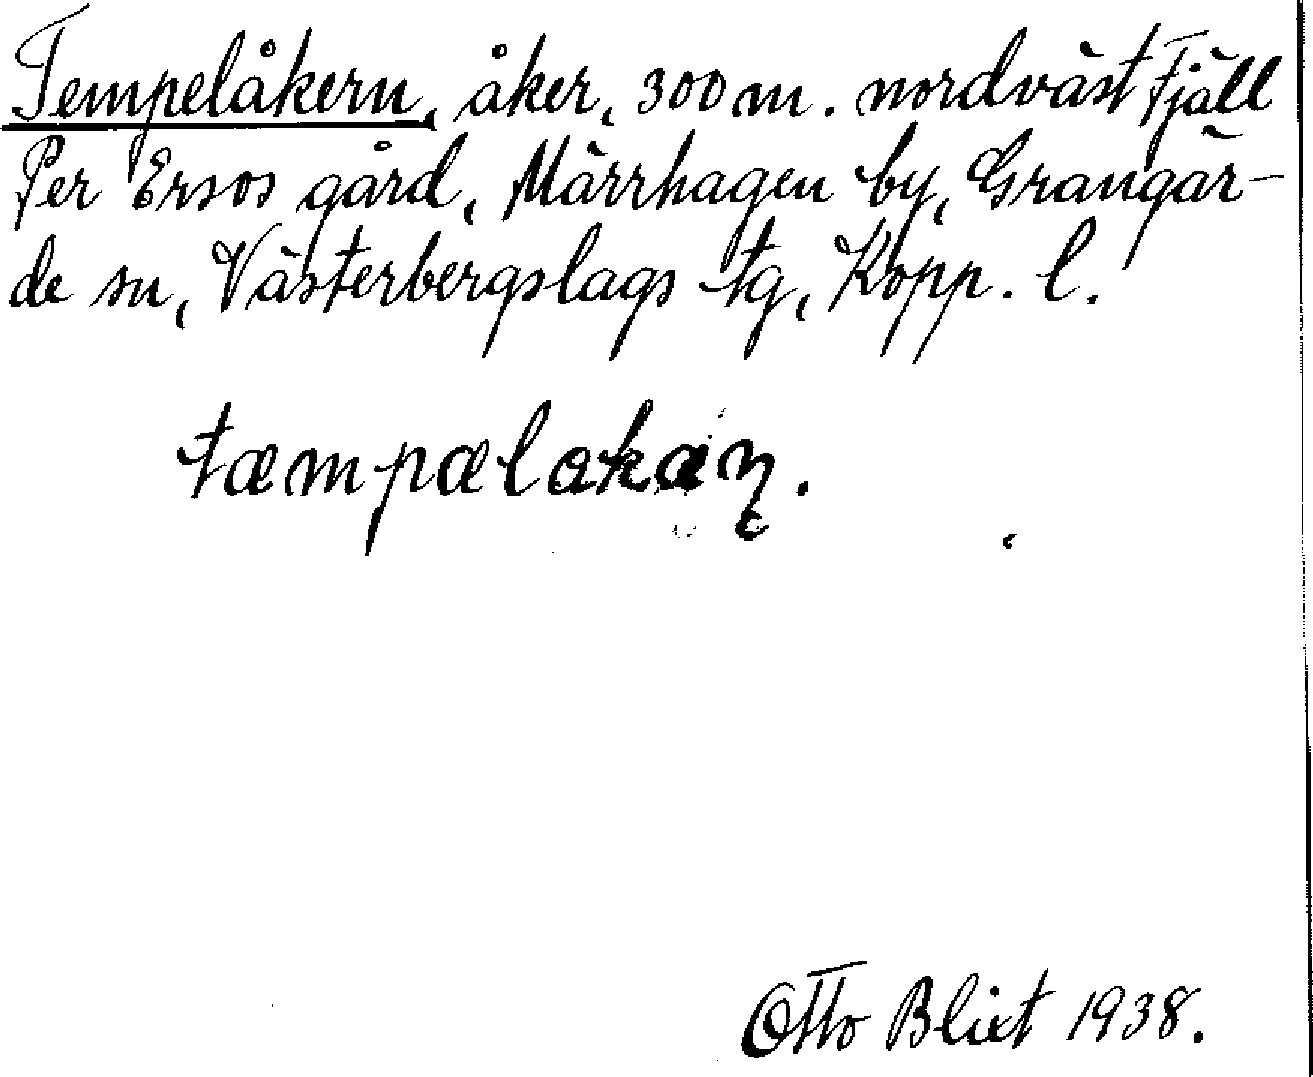 Tempelåkern, åker, 300 m. nordväst Fjäll
Per Ersos gård, Märrhagen by, Grangär-
de sn, Västerbergslags tg, Kopp. l.
tæmpælakaɳ.
Otto Blixt 1938.